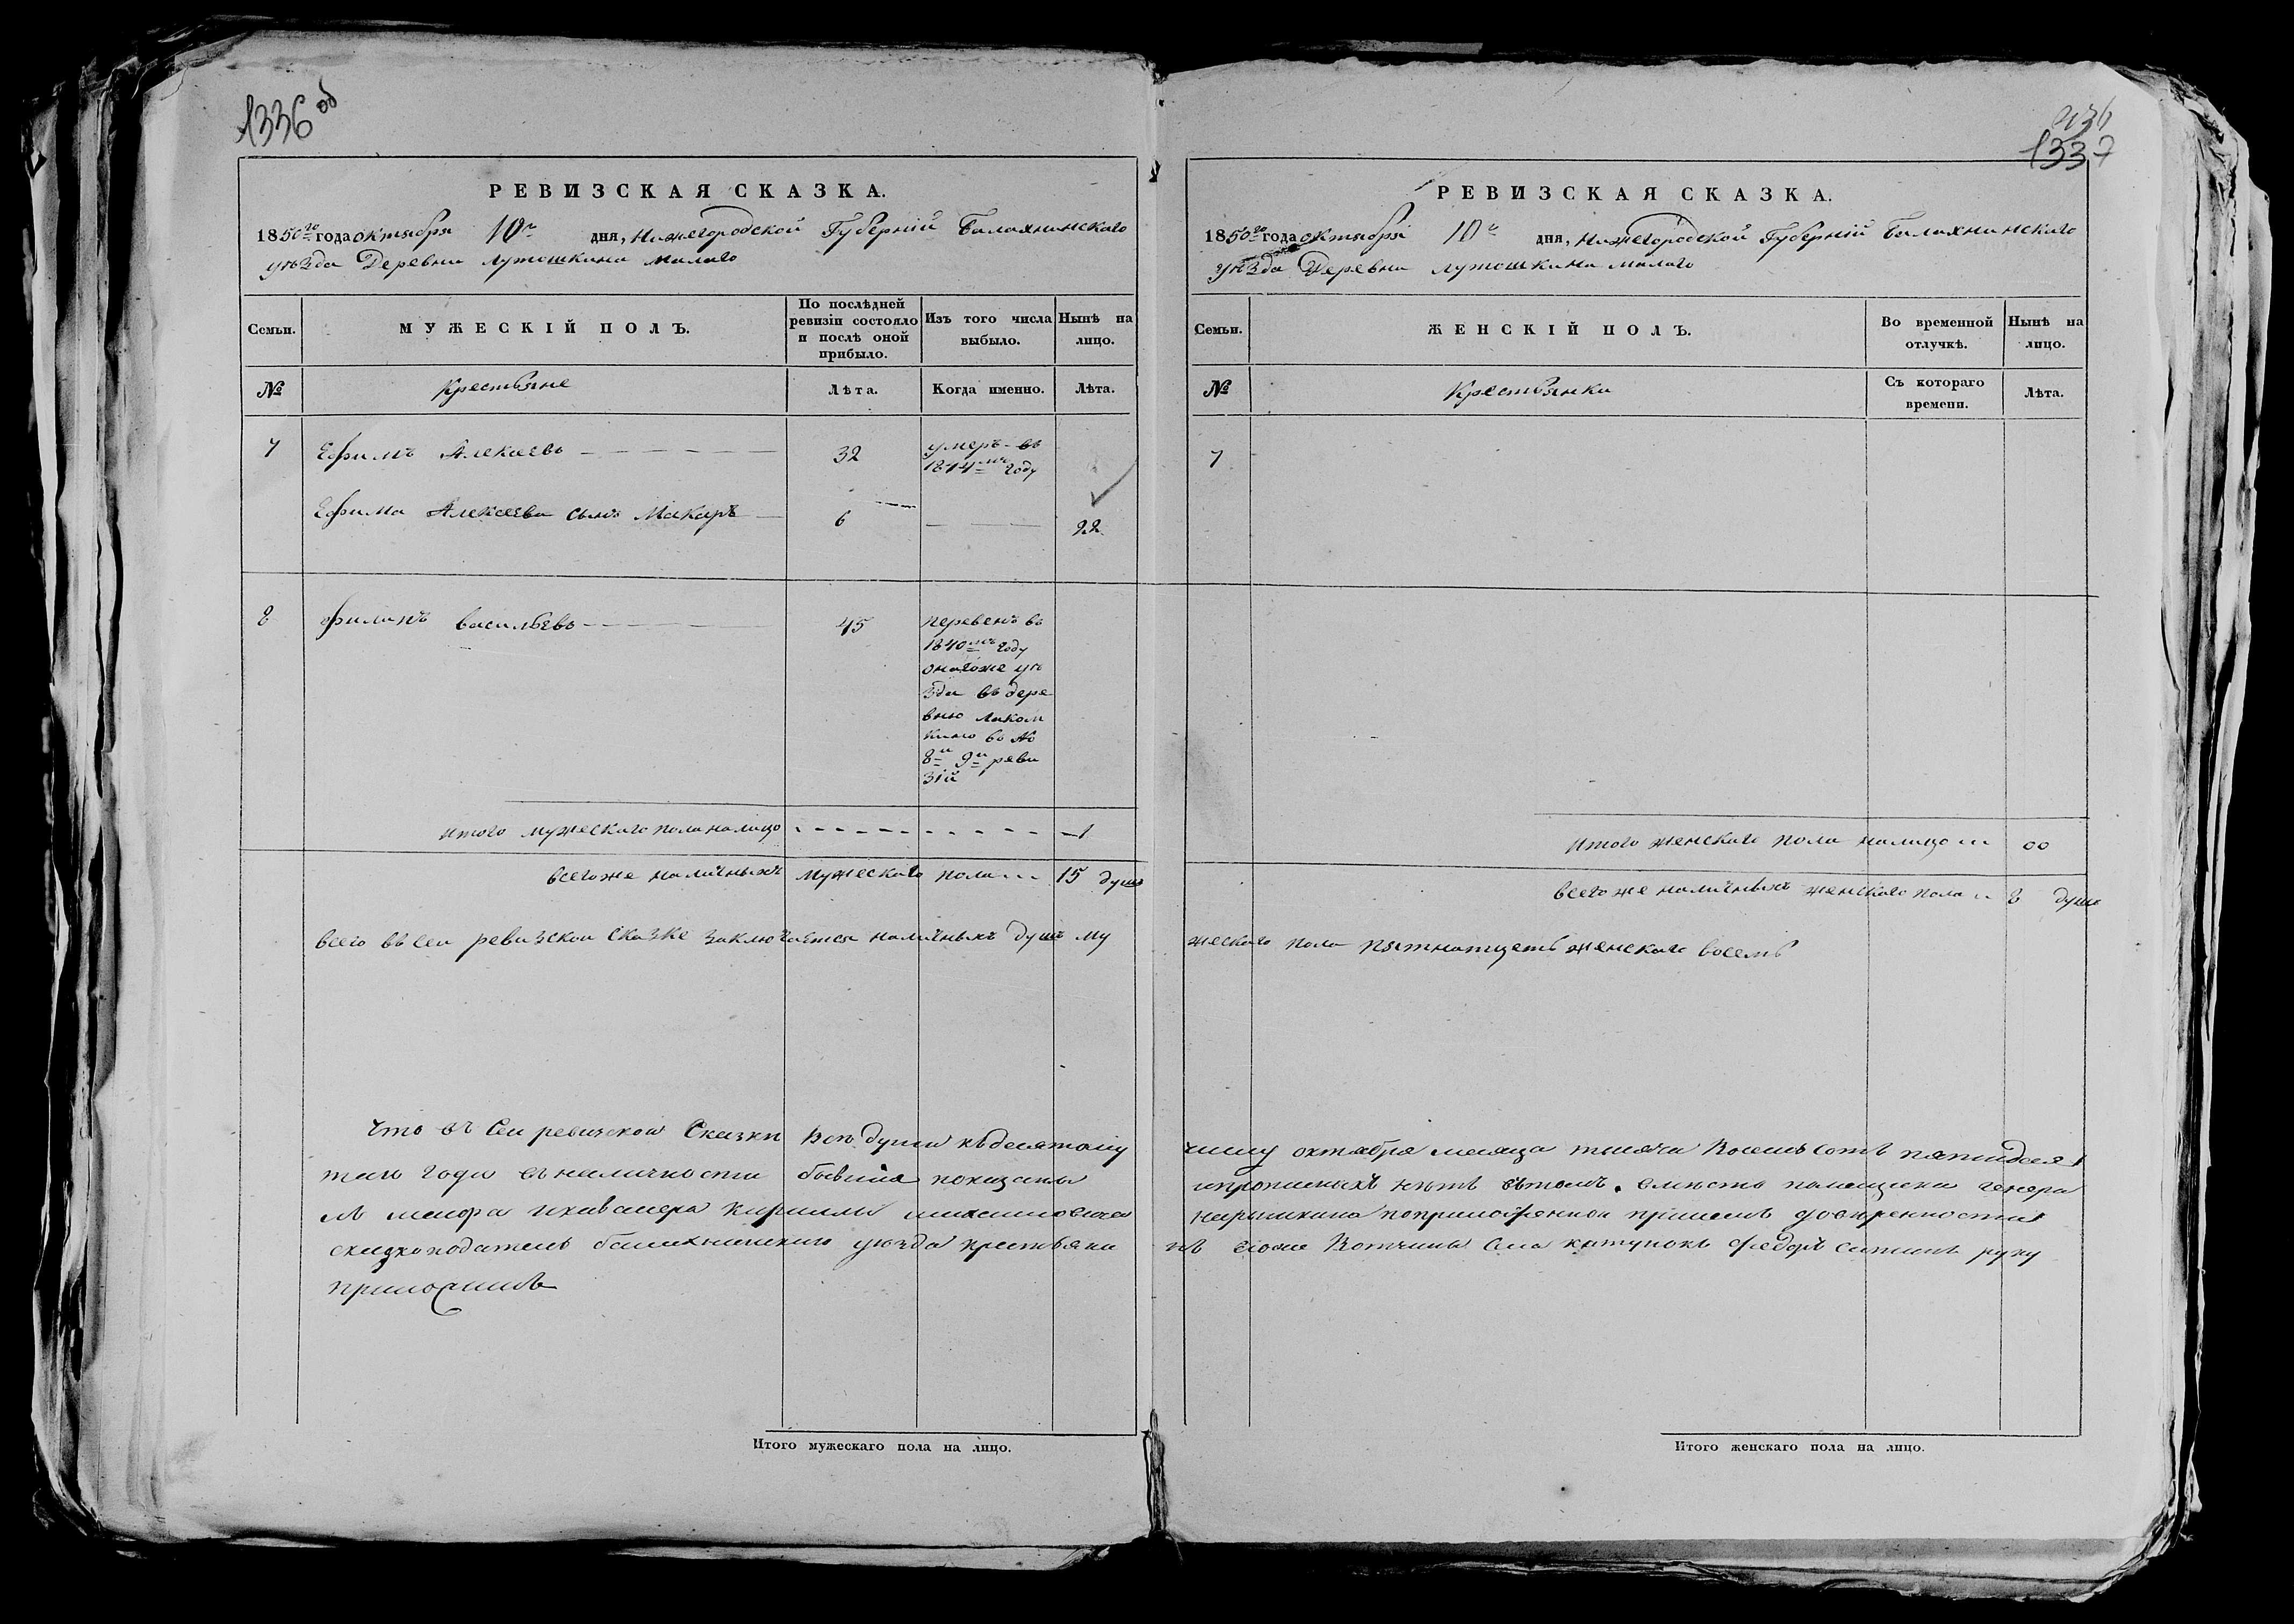 1336 об
РЕВИЗСКАЯ СКАЗКА.
1850го года октября 10го дня, Нижегородской Губерніи Балахнинскаго
уѣзда Деревни Лутошкина малаго
Семьи.
МУЖЕСКІЙ ПОЛЪ.
По послѣдней ревизіи состояло и послѣ оной прибыло.
Изъ того числа выбыло.
Нынѣ на лицо.
№
Крестьяне
Лѣта.
Когда именно.
Лѣта.
7 Ефимъ Алексѣевъ 32 умеръ въ
1844мъ году
Ефима Алексеева сынъ Макаръ 6 22
8 Филипъ васильевъ 45 переведенъ въ
1840мъ году
онагоже уѣ
зда въ дере
вню Лаком
кино въ №
8й 9й реви
зіи
итого мужескаго пола налицо 1
всегоже наличныхъ мужескаго пола 15 душъ
всего въ сеи ревизскои сказке заключается наличныхъ душъ му
Что въ Сеи ревизскои Сказки Все души къ десятому
таго года въ наличности бывшия показаны
приложилъ
1337
РЕВИЗСКАЯ СКАЗКА.
1850го года октября 10го дня, Нижегородской Губерніи Балахнинскаго
уѣзда Деревни Лутошкина малаго
Семьи.
ЖЕНСКІЙ ПОЛЪ.
Во временной отлучкѣ.
Нынѣ на лицо.
№
Крестьянки
Съ котораго времени.
Лѣта.
7
Итого женскаго пола налицо 00
всего же наличныхъ женскаго пола 8 душъ
жескаго пола пятнатцеть женскаго восемь
числу октября месяца тысяча Восемьсотъ пятидеся
вотчины села катунокъ Федоръ руку
Итого мужескаго пола на лицо.
Итого женскаго пола на лицо.